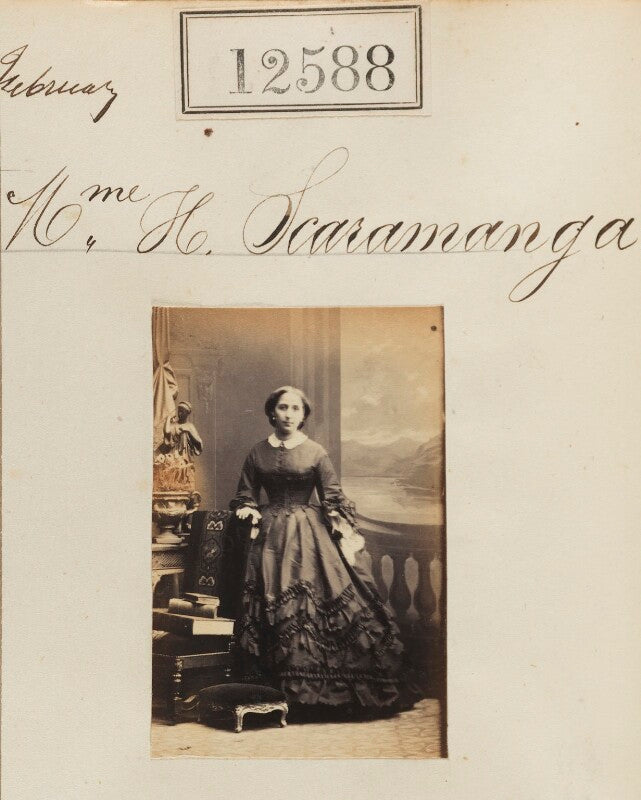 12588
February
Mme H. Scaramanga